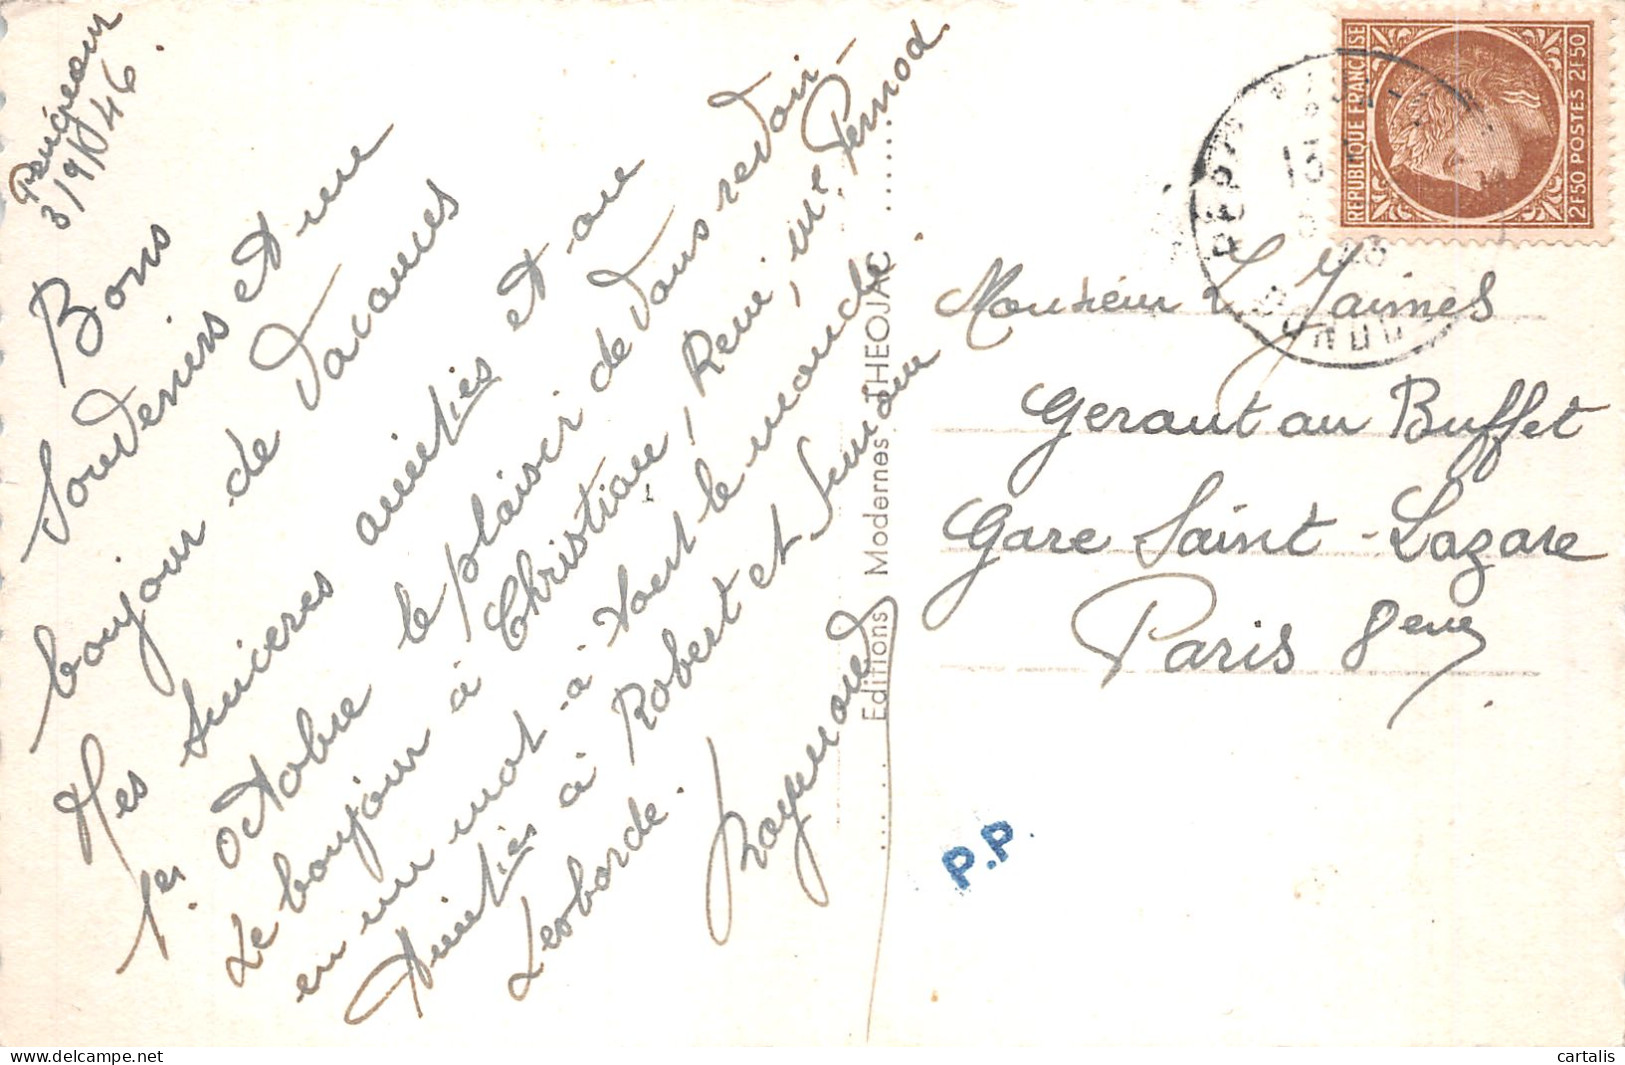 3/9/46
Bons
Souvenirs et un
bonjour de Vacances
Mes sincères amitiés et au
1er Octobre le plaisir de vous revoir
Le bonjour à Christian, Reni, Me Pernod
en un mot à tout le monde
Amitiés à Robert et Simone
Lesborde.
Raymond
Editions Modernes THEOJAC
REPUBLIQUE FRANÇAISE
2F50 POSTES 2F50
13
Monsieur L. Jaimes
Gerant au Buffet
Gare Saint-Lazare
Paris 8eme
P.P.
cartalis